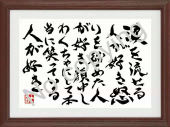 涙を流せる
人が好き怒
りを人
が好き顔中し
わくちゃにして本
当に笑える
人が好き